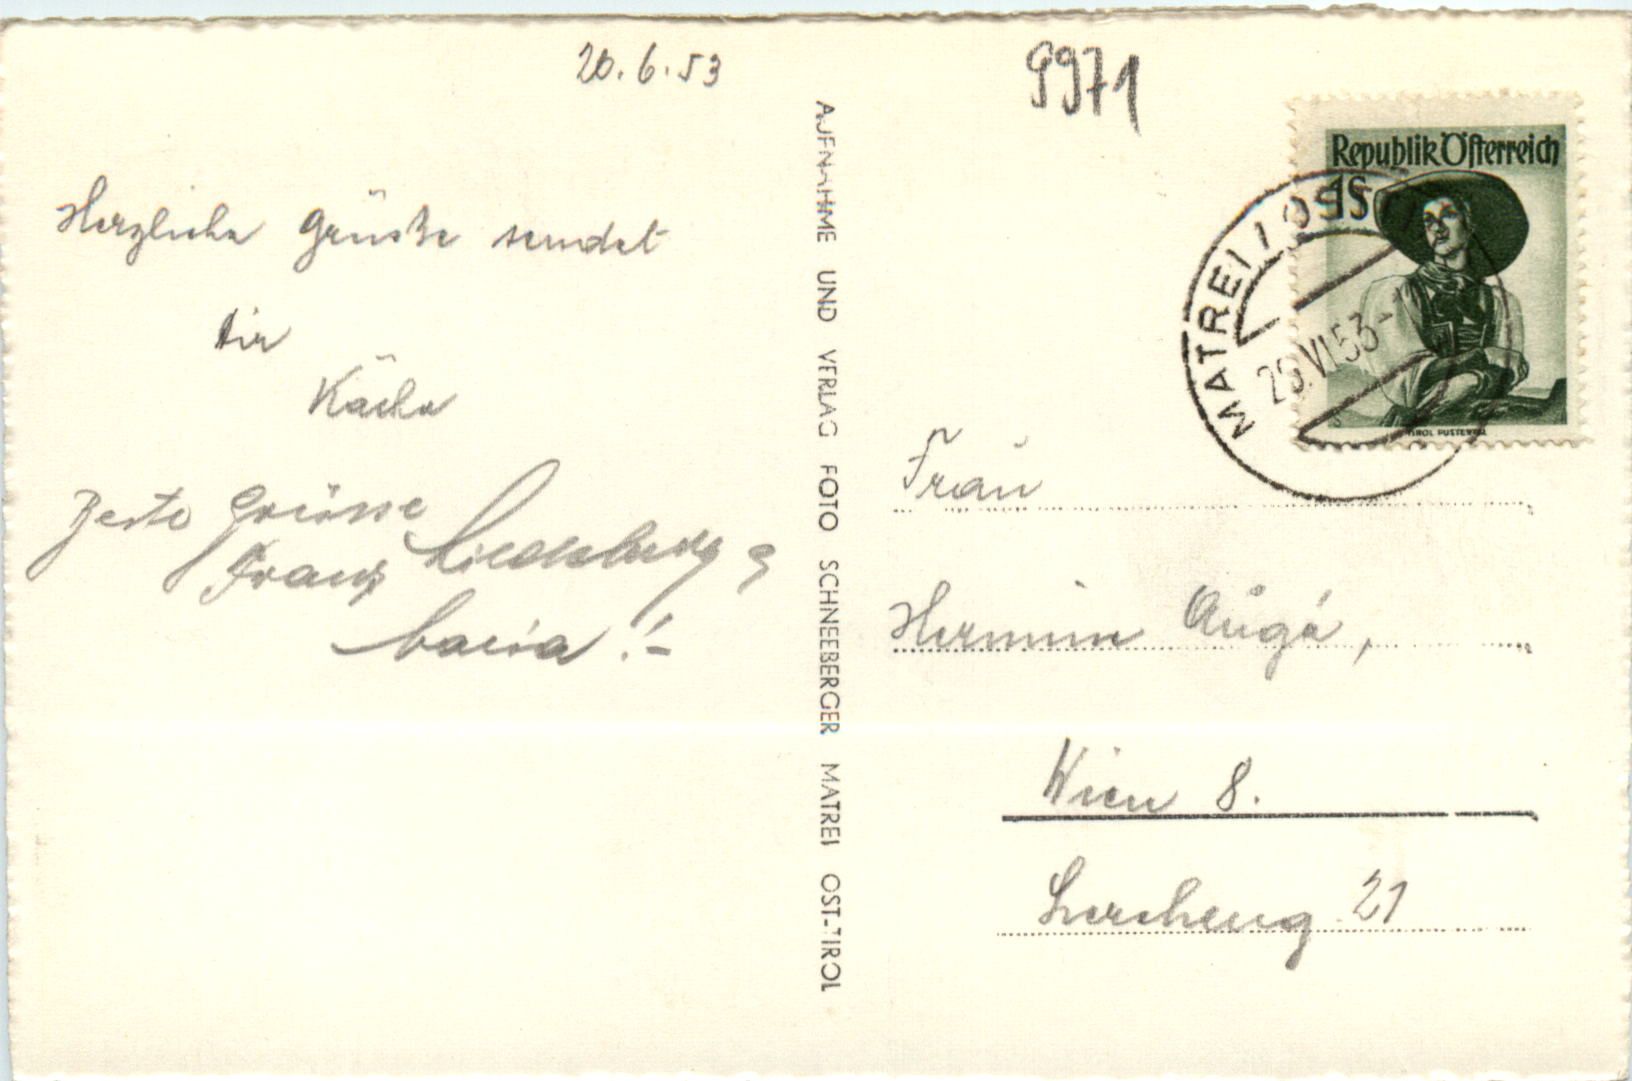 20.6.53
9971
Herzliche Grüsse sendet
dir
Käthe
Beste Grüsse
Franz
Maria !-
AUFNAHME UND VERLAG FOTO SCHNEEBERGER MATREI OST-TIROL
Republik Österreich
1S
TIROL PUSTERTAL
MATREI / OST
VI 53-
Frau
Hermine
Wien 8.
Lercheng. 21